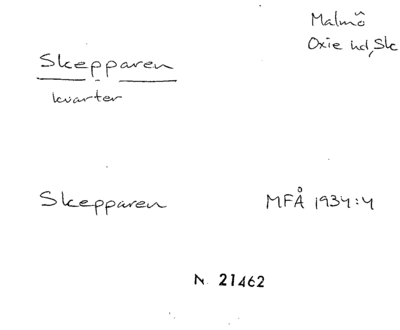 Malmö
Oxie hd, Sk
Skepparen
kvarter
Skepparen MFÅ 1934:4
N. 21462